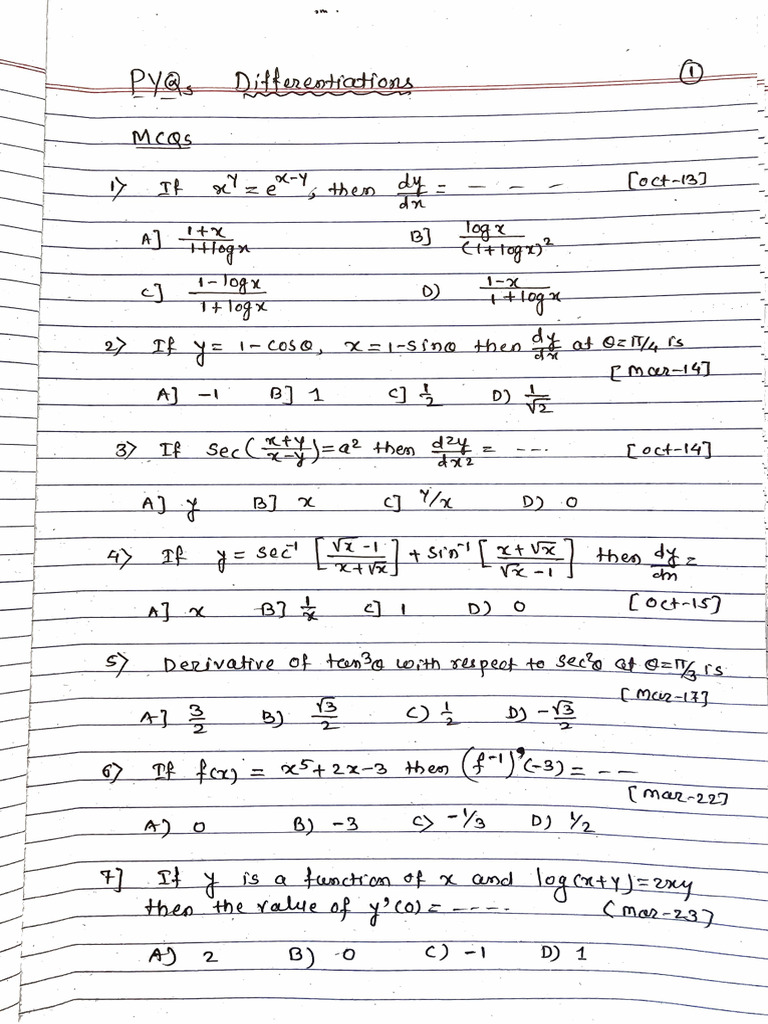 PYQs Differentiations ①
MCQs
1) If x^y = e^(x-y), then dy/dx = - - - [oct-13]
A] (1+x)/(1+logx) B] logx/(1+logx)^2
C] (1-logx)/(1+logx) D) (1-x)/(1+logx)
2) If y = 1-cosθ, x = 1-sinθ then dy/dx at θ=π/4 is
[Mar-14]
A] -1 B] 1 C] 1/2 D) 1/√2
3) If sec((x+y)/(x-y)) = a^2 then d^2y/dx^2 = --- [oct-14]
A] y B] x C] y/x D) 0
4) If y = sec^-1 [(√x-1)/(x+√x)] + sin^-1 [(x+√x)/(√x-1)] then dy/dx =
A] x B] 1/x C] 1 D) 0 [Oct-15]
5) Derivative of tan^3θ with respect to sec^2θ at θ=π/3 is
[Mar-17]
A] 3/2 B) √3/2 C) 1/2 D) -√3/2
6) If f(x) = x^5+2x-3 then (f^-1)'(-3) = --
[Mar-22]
A) 0 B) -3 C) -1/3 D) 1/2
7] If y is a function of x and log(x+y)=2xy
then the value of y'(0) = ---- (Mar-23]
A) 2 B) 0 C) -1 D) 1